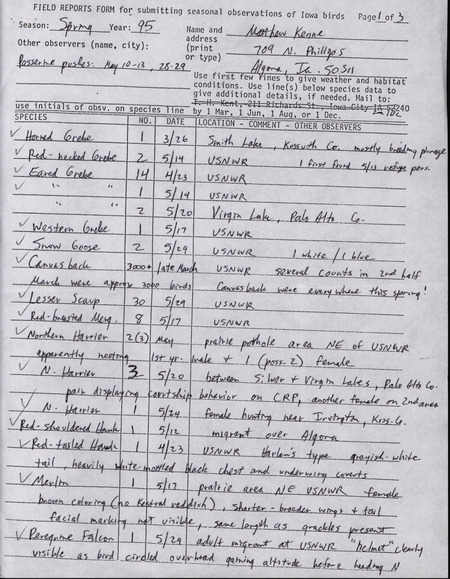 FIELD REPORTS FORM for submitting seasonal observations of Iowa birds Page 1 of 3
Season: Spring Year: 95 Name and address (print or type) Matthew Kenne
Other observers (name, city): 709 N. Phillips
Passerine pushes: May 10-13, 28-29 Algona, Ia. 50511
Use first few lines to give weather and habitat
conditions. Use line(s) below species data to
give additional details, if needed. Mail to:
T. H. Kent, 211 Richards St., Iowa City IA 52240
use initials of obsv. on species line by 1 Mar, 1 Jun, 1 Aug, or 1 Dec.
SPECIES NO. DATE LOCATION - COMMENT - OTHER OBSERVERS
✓ Horned Grebe 1 3/26 Smith Lake, Kossuth Co. mostly breeding plumage
✓ Red-necked Grebe 2 5/14 USNWR 1 first found 5/12 refuge pers.
✓ Eared Grebe 14 4/23 USNWR
✓ " " 1 5/14 USNWR
" " 2 5/20 Virgin Lake, Palo Alto Co.
✓ Western Grebe 1 5/17 USNWR
✓ Snow Goose 2 5/29 USNWR 1 white / 1 blue
✓ Canvasback 3000+ late March USNWR several counts in 2nd half
March were approx 3000 birds Canvasback were everywhere this spring!
✓ Lesser Scaup 30 5/29 USNWR
✓ Red-breasted Merg. 8 5/17 USNWR
✓ Northern Harrier 2(3) May prairie pothole area NE of USNWR
apparently nesting 1st yr. male + 1 (poss. 2) female
✓ N. Harrier 3 5/20 between Silver + Virgin Lakes, Palo Alto Co.
pair displaying courtship behavior on CRP, another female on 2nd area
✓ N. Harrier 1 5/24 female hunting near Irvington, Koss. Co.
✓ Red-shouldered Hawk 1 5/12 migrant over Algona
✓ Red-tailed Hawk 1 4/23 USNWR Harlan's type grayish-white
tail, heavily white-mottled black chest and underwing coverts
✓ Merlin 1 5/17 prairie area NE USNWR female
brown coloring (no Kestrel reddish), shorter-broader wings + tail
facial marking not visible, same length as grackles present
✓ Peregrine Falcon 1 5/29 adult migrant at USNWR "helmet" clearly
visible as bird circled overhead gaining altitude before heading N